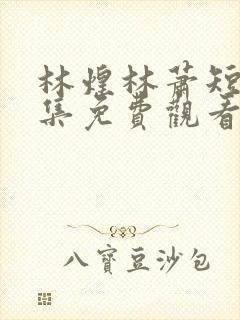 林煌林蕭短
集免費觀看
八寶豆沙包